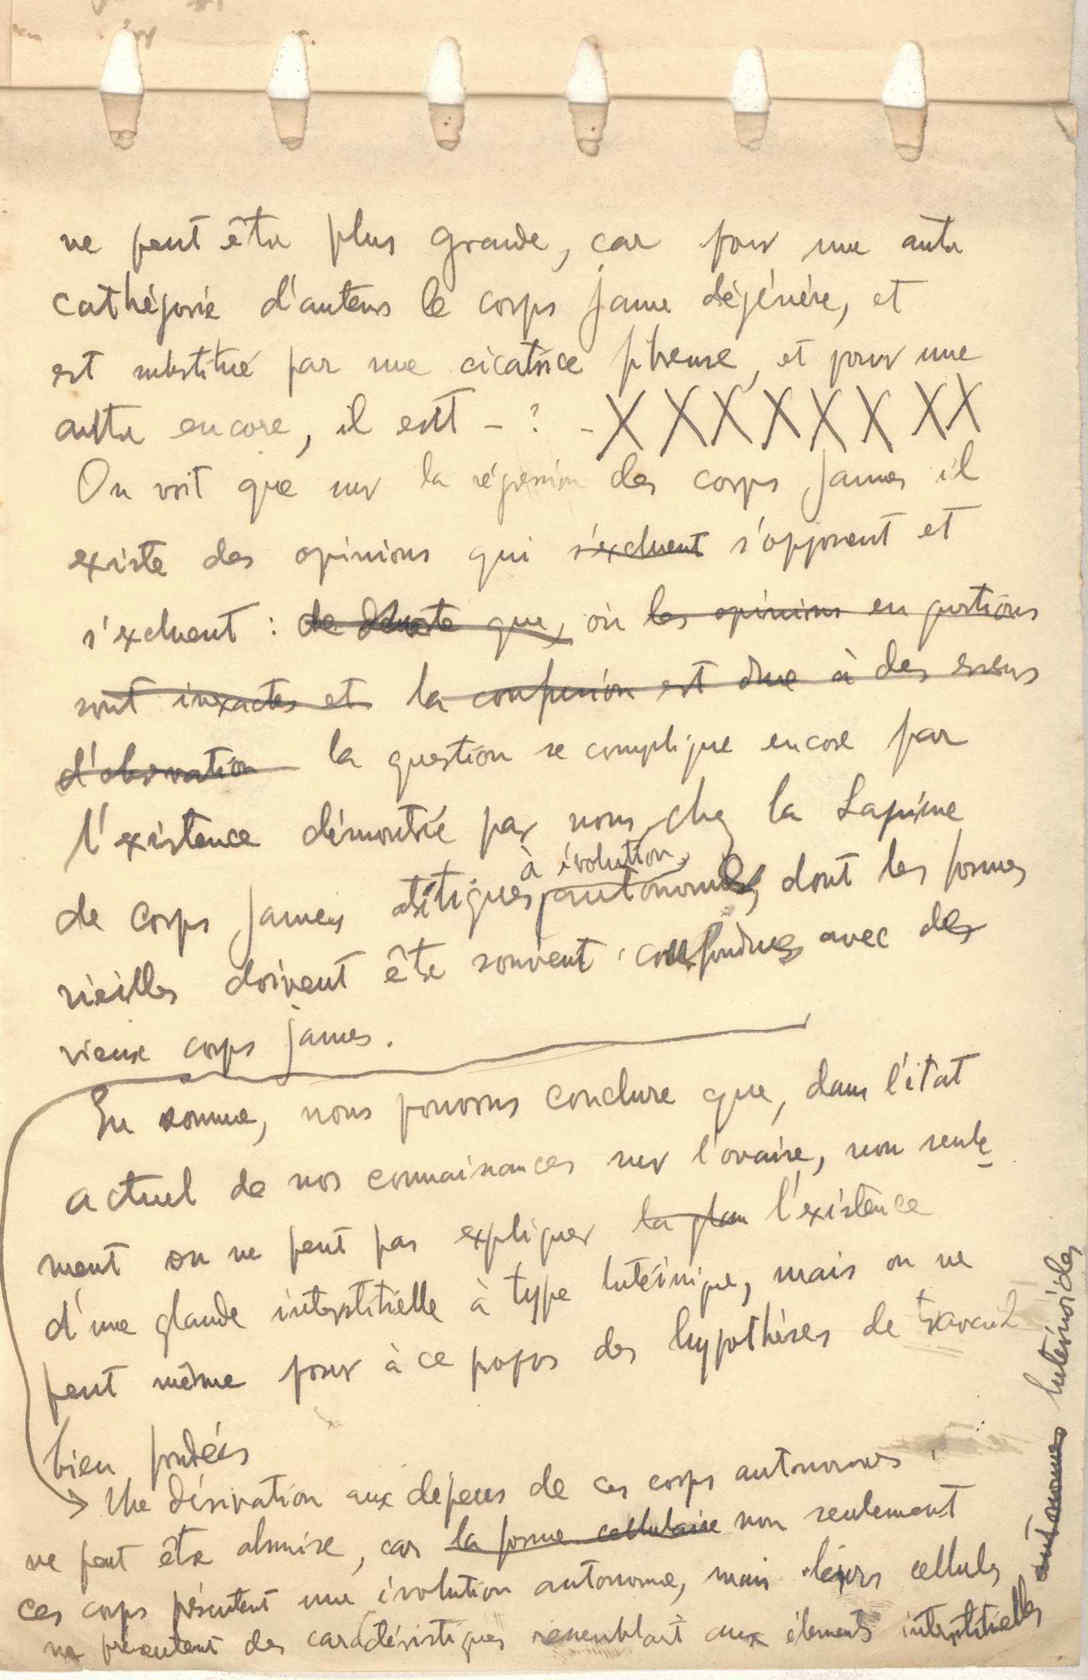 ne peut être plus grande, car pour une autre
cathégorie d'auteurs le corps jaune dégénère, et
est substitué par une cicatrice fibreuse, et pour une
autre encore, il est - ? - XXXXXXXX
On voit que sur la régression des corps jaunes il
existe des opinions qui s'excluent s'opposent et
s'excluent : que, où les opinions en questions
sont inexactes et la confusion est due à des erreurs
d'observation la question se complique encore par
l'existence démontrée par nous chez la Lapine
à évolution
de corps jaunes atétiques autonomes, dont les formes
vieilles doivent être souvent confondues avec des
vieux corps jaunes.
En somme, nous pouvons conclure que, dans l'état
actuel de nos connaissances sur l'ovaire, non seule
ment on ne peut pas expliquer la plan l'existence
d'une glande interstitielle à type lutéinique, mais on ne
peut même poser à ce propos des hypothèses de travail
bien fondées
Une dérivation aux dépens de ces corps autonomes
ne peut être admise, car la forme cellulaire non seulement
ces corps présentent une évolution autonome, mais leurs cellules
ne présentent des caractéristiques ressemblant aux éléments interstitielles
autonomes lutéinoïdes